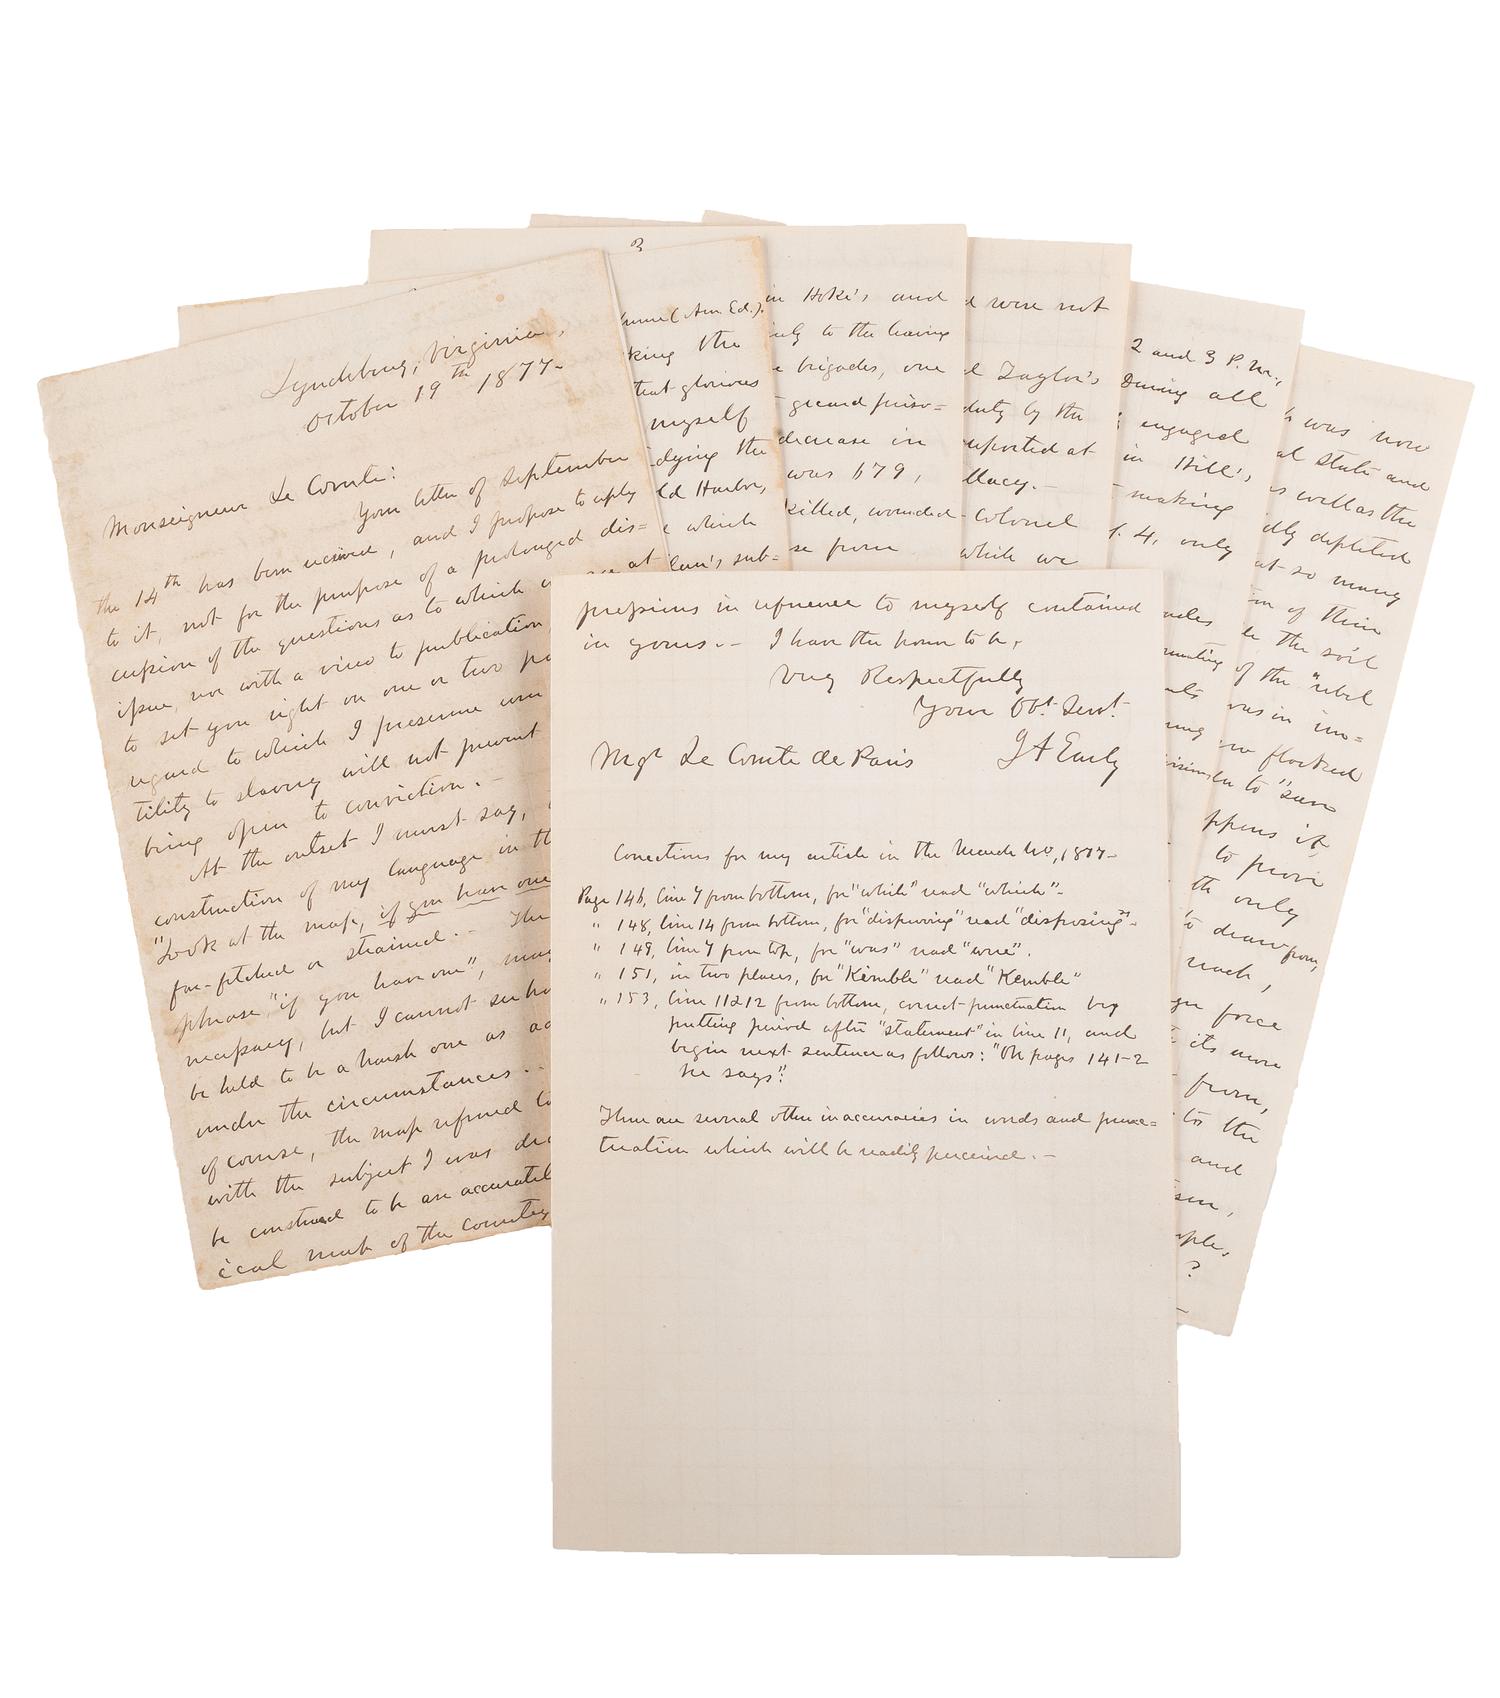 Lynchburg, Virginia,
October 19th 1877-
Monseigneur Le Comte:
Your letter of September
the 14th has been received, and I propose to reply
to it, not for the purpose of a prolonged dis=
cussion of the questions as to which
issue, nor with a view to publication
to set you right on one or two
regard to which I presume
tility to slavery will not prevent
being open to conviction. -
At the outset I must say,
construction of my language in th
"Look at the map, if you have one
far-fetched or strained. - The
phrase "if you have one", may
necessary, but I cannot
be held to be a harsh one as
under the circumstances. -
of course, the map referred to
with the subject I was
be construed to be an accurate
ical map of the country
3
(Am. Ed.).
king the
that glorious
myself
dying the
ld Harbor,
which
lan's sub=
at
in Hoke's and
to the leaving
brigades, one
guard priso=
decrease in
was 679,
killed, wounded
se from
d were not
d Taylor's
duty by the
reported at
llacy. -
Colonel
which we
2 and 3 P.M.,
During all
engaged
in Hill's,
making
4, only
was now
al State and
as well as the
dly depleted
at so many
on of their
the soil
of the "rebel
was in im=
flocked
to "save
ppens it,
to prove
th only
to draw from,
each,
force
its more
from,
to the
and
?
pressions in reference to myself contained
in yours. - I have the honor to be,
Very Respectfully
Your Obt. Servt.
Mgr Le Comte de Paris J A Early
Corrections for my article in the March No, 1877-
Page 146, line 7 from bottom, for "while" read "which"-
" 148, line 14 from bottom, for "disproving" read "disposing"-
" 149, line 7 from top, for "was" read "were".
" 151, in two places, for "Kimble" read "Kemble"
" 153, line 11 & 12 from bottom, correct punctuation by
putting period after "statement" in line 11, and
begin next sentence as follows: "On pages 141-2
he says"
There are several other inaccuracies in words and punc=
tuation which will be readily perceived. -